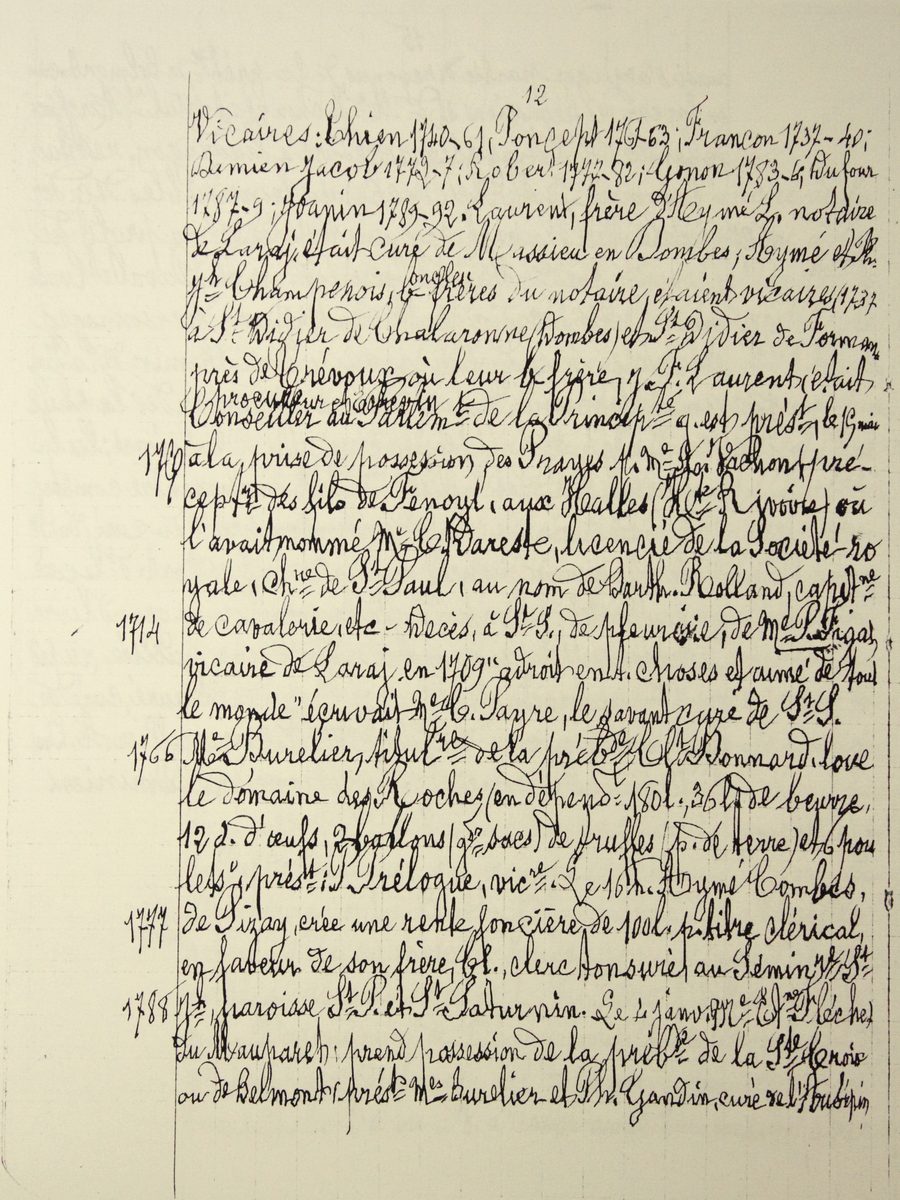 12
Vicaires: Chien 1740-61; Poncept 1761-63; Francon 1737-40;
Damien Jacob 1772-7; Robert 1777-82; Gonon 1783-6; Dufour
1787-9; Joanin 1789-92. Laurent, frère d'Hymé L. notaire
de Laraj, était curé de Massieu en Dombes; Aymé et
Jh Champenois, frères du notaire, étaient vicaires (1737
à St Didier de Chalaronne (Dombes) et St Didier de Forman
près de Trévoux où leur frère, J. F. Laurent, était
procureur et
Conseiller au Parlemt de la Principté q. est prést, le 19 mai
à la prise de possession des Prayes p. Me Vachon, pré-
ceptr des fils de Fenoyl, aux Halles (Hte Rivoire) où
l'avait nommé Me C. Dareste, licencié de la Société ro
yale, Chne de St Paul, au nom de Barth. Rolland, capitne
1714 de cavalerie, etc - Décès, à St S., de pleurésie, de Me P. Figat,
vicaire de Laraj en 1709 "adroit en t. choses et aimé de tout
le monde" écrivait Me C. Payre, le savant curé de St S.
1766 Me Burelier, titulre de la prébde Bonnard, loue
le domaine des Roches (en dépend. 180 l., 36 l. de beurre,
12 d. d'œufs, 2 ballons (gds sacs) de truffes (p. de terre) et 6 pou
lets, prést: P. Prélogue, vicre. Le 16 n. Aymé Combes,
1777 de Sizay, crée une rente foncière de 100 l. p. titre clérical,
en faveur de son frère, Cl., clerc tonsuré au Sémin. St
1788 paroisse St P. et St Saturnin. Le 4 janv. Fléchet
du Mauparet, prend possession de la prébde de la Ste Croix
ou de Belmont; présts Mes Burelier et Th. Gandin, curé de l'Aubépin